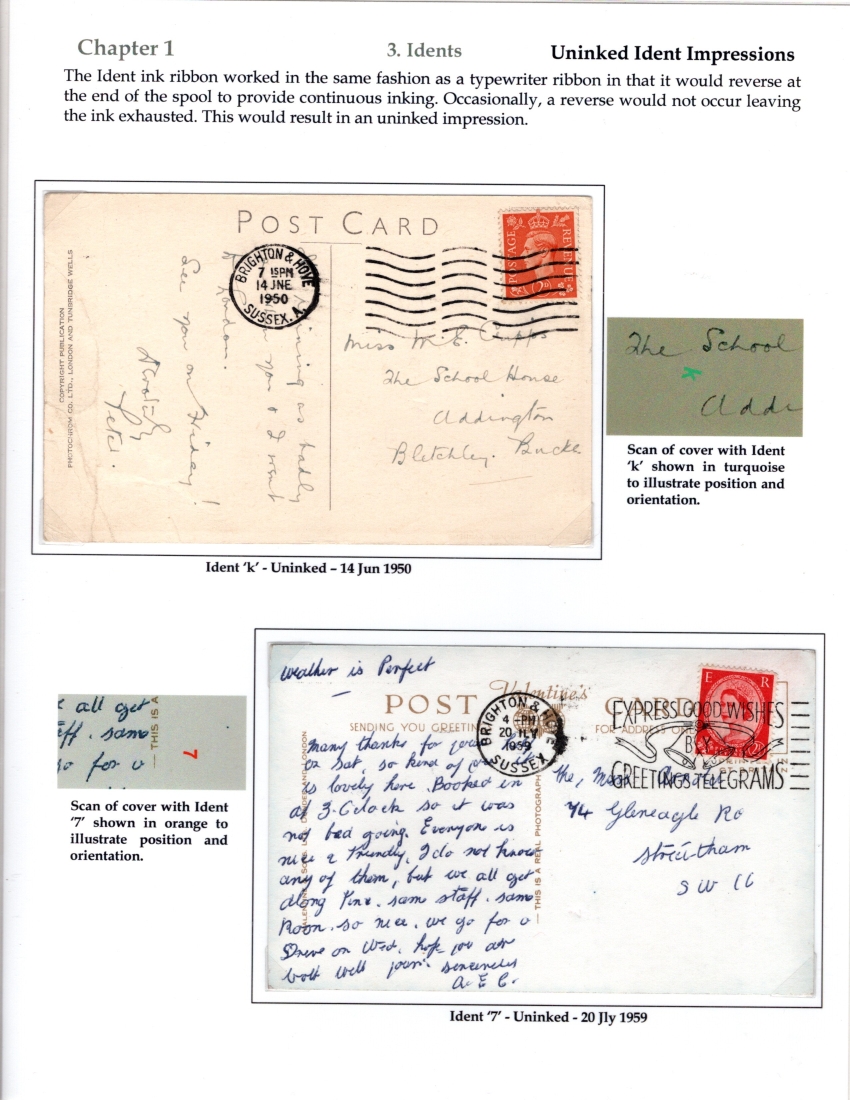 Chapter 1 3. Idents Uninked Ident Impressions
The Ident ink ribbon worked in the same fashion as a typewriter ribbon in that it would reverse at
the end of the spool to provide continuous inking. Occasionally, a reverse would not occur leaving
the ink exhausted. This would result in an uninked impression.
POST CARD
COPYRIGHT PUBLICATION
PHOTOCHROM CO. LTD., LONDON AND TUNBRIDGE WELLS
BRIGHTON & HOVE
7 15PM
14 JNE
1950
SUSSEX. A.
POSTAGE REVENUE
London.
See you on Friday!
Peter.
Miss M. E.
The School House
Addington
Bletchley. Bucks
The School
k
Addi
Scan of cover with Ident
'k' shown in turquoise
to illustrate position and
orientation.
Ident 'k' - Uninked – 14 Jun 1950
Weather is Perfect
POST CARD
Valentine's
SENDING YOU GREETIN
FOR ADDRESS ONL
E R
BRIGHTON &
4 - PM
20 JLY
1959
SUSSEX
EXPRESS GOOD WISHES
BY
GREETINGS TELEGRAMS
Many thanks for your
on Sat, so kind of
is lovely here. Booked in
at 3. Oclock so it was
not bad going. Everyone is
nice & Friendly, I do not know
any of them, but we all get
along Fine. sam staff. sam
Room. so nice. we go for a
Drive on Wed. hope you are
both well yours sincerely
A. E. C.
THIS IS A REAL PHOTOGRAPH
74 Gleneagle Rd
Streatham
S W 16
all get
staff. sam
go for a
THIS IS A
7
Scan of cover with Ident
'7' shown in orange to
illustrate position and
orientation.
Ident '7' - Uninked - 20 Jly 1959